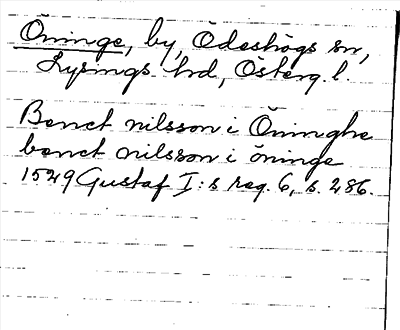 Öninge, by, Ödeshögs sn,
Lysings hd, Österg. l.
Benct nilsson i Öninghe
benct nilsson i öninge
1529 Gustaf I:s reg. 6, s. 286.